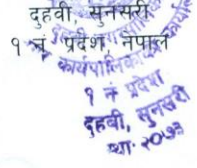 दुहवी, सुनसरी
१ नं प्रदेश, नेपाल
कार्यपालिका
१ नं प्रदेश
दुहवी, सुनसरी
स्था. २०७३